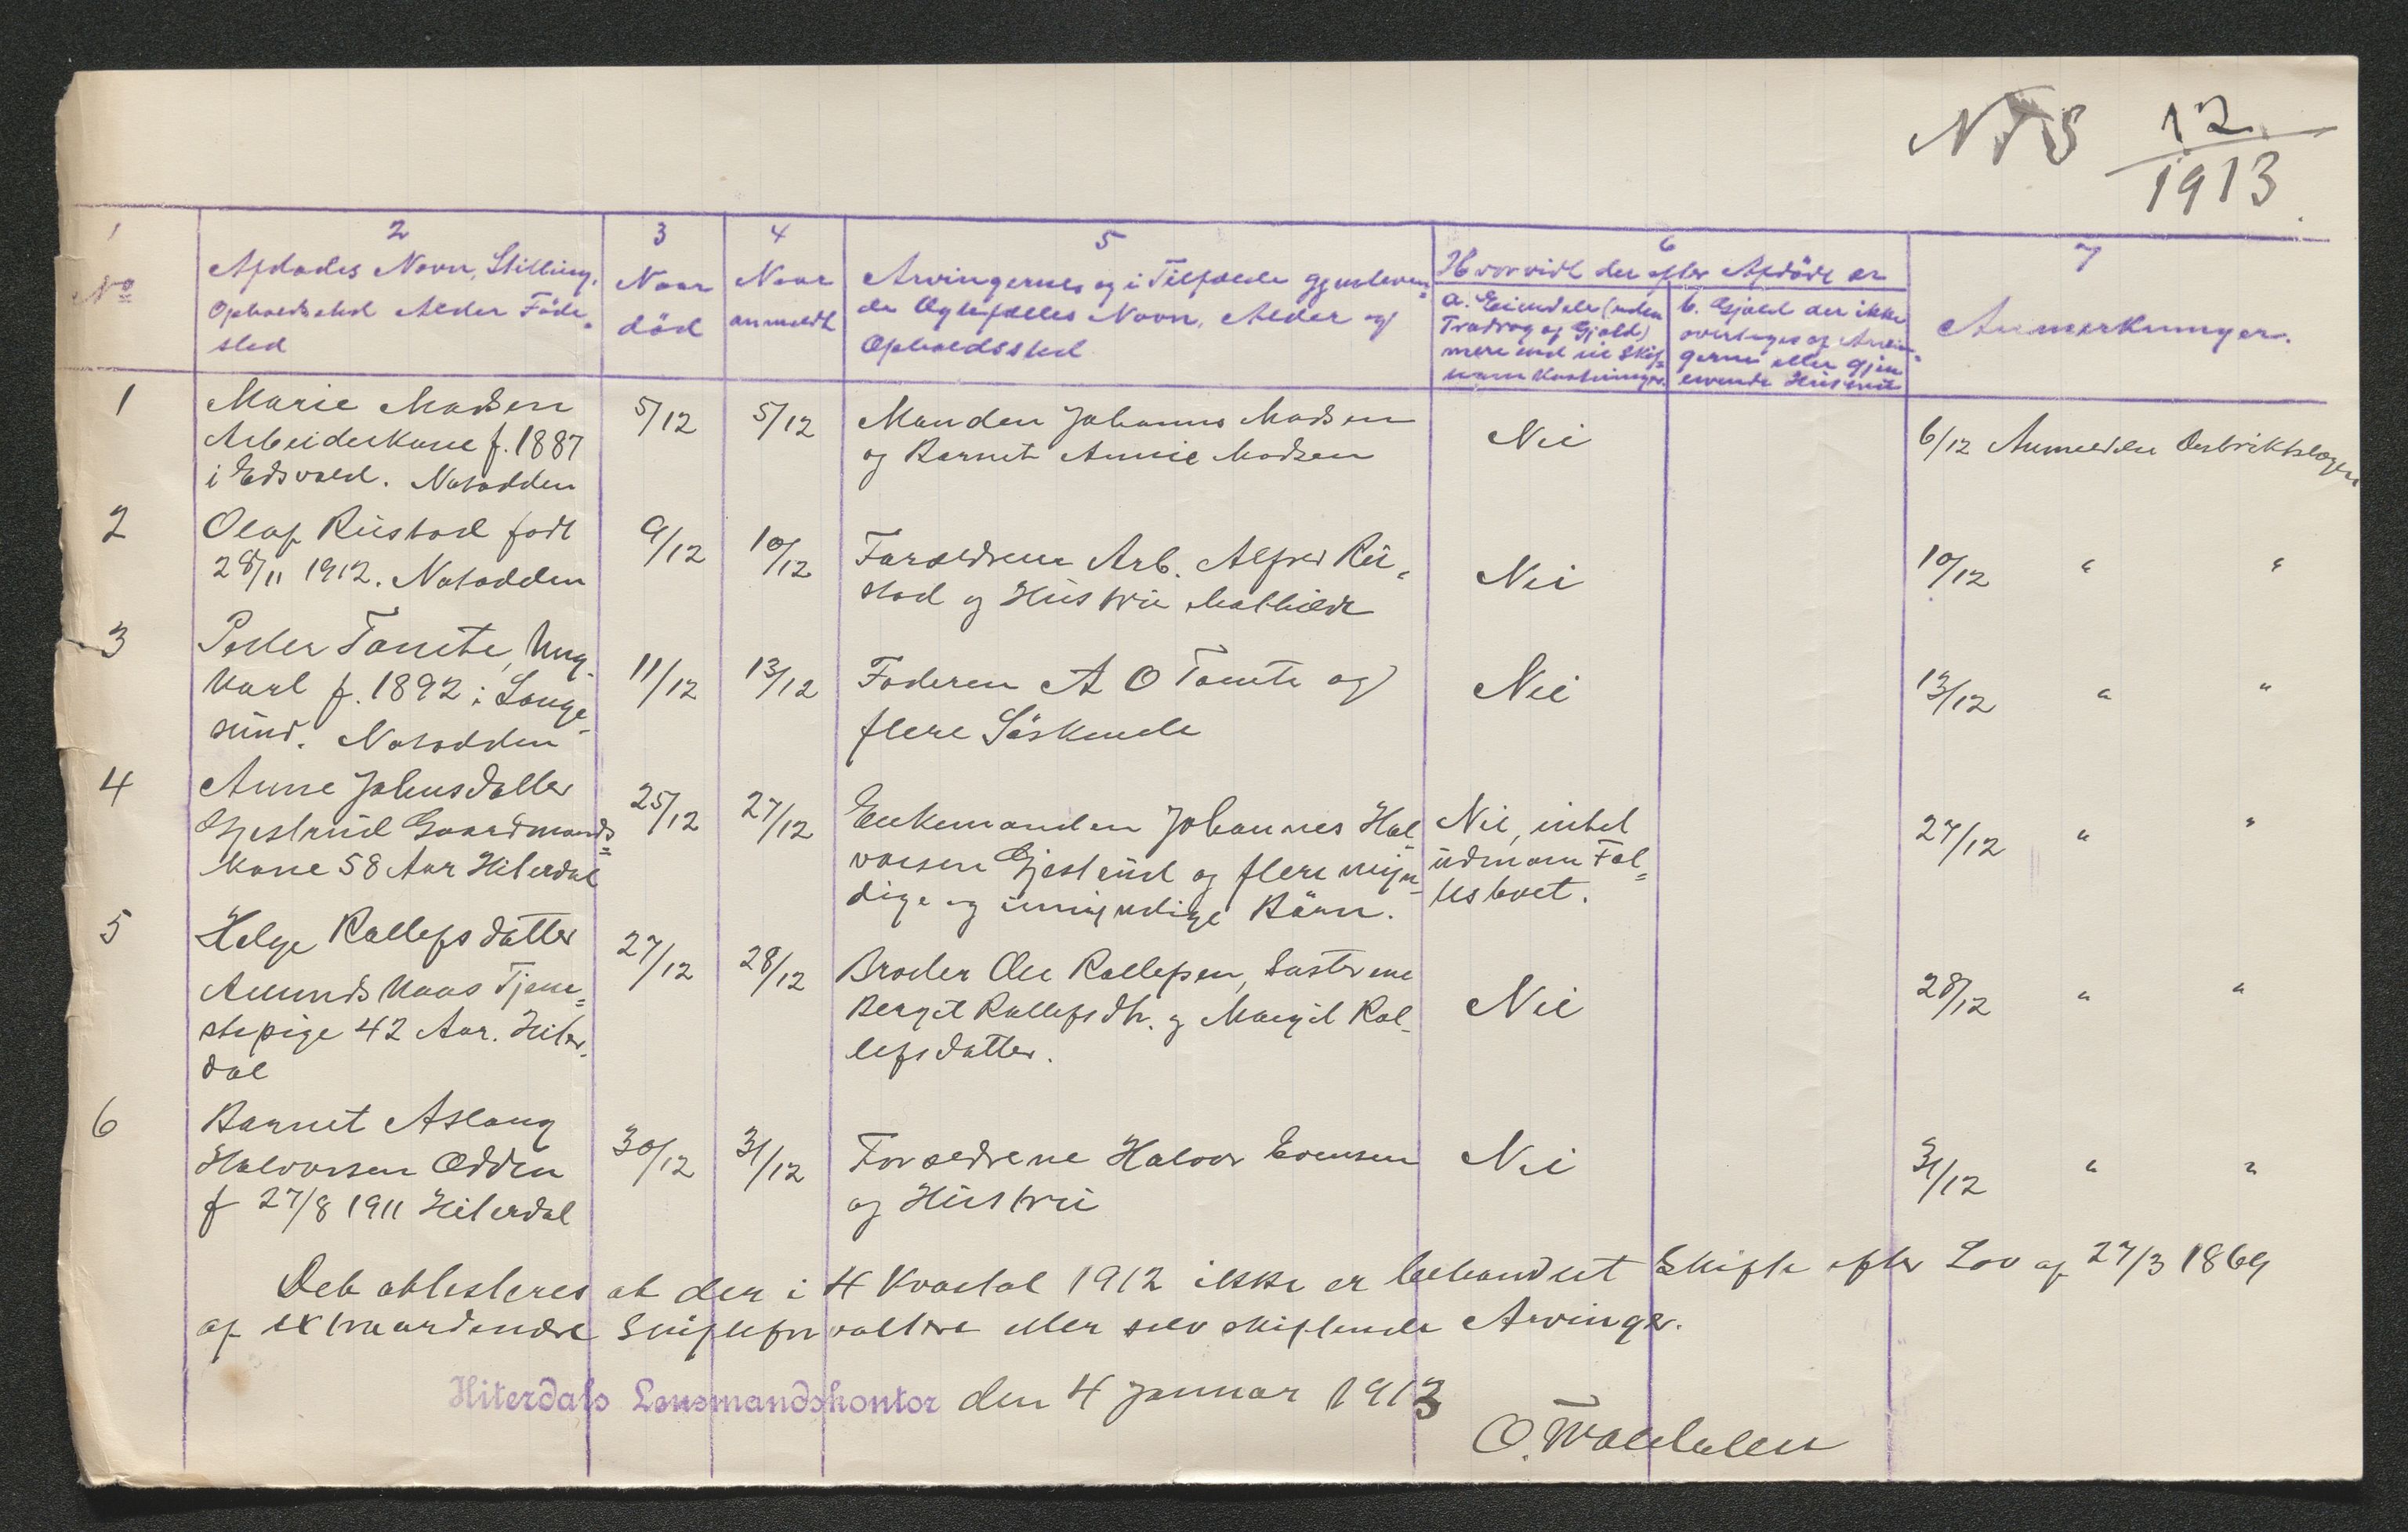 NTS 12/1913
1 2 3 4 5 6 7
No
Afdødes Navn, Stilling,
Opholdssted Alder Føde-
sted
Naar
død
Naar
anmeldt
Arvingernes og i Tilfælde gjenleven-
de Ægtefælles Navn, Alder og
Opholdssted
Hvorvidt der efter Afdøde er
a. Eiendele (uden
Fradrag af Gjæld)
mere end til Skif-
tets Omkostninger.
b. Gjæld der ikke
overtages af Arvin-
gerne eller gjen-
levende Hustru
Anmerkninger.
1
Marie Madsen
Arbeiderkone f. 1887
i Edsvold. Notodden
5/12
5/12
Manden Johannes Madsen
og Barnet Annie Madsen
Nei
6/12 Anmeldelse Destriktslægen
2
Olaf Riistad født
28/11 1912. Notodden
9/12
10/12
Foreldrene Arb. Alfred Rii-
stad og Hustru Mathilde
Nei
10/12 " "
3
Peder Tomte, Ung-
karl f. 1892 i Lange-
sund. Notodden
11/12
13/12
Faderen A O Tomte og
flere Søskende
Nei
13/12 " "
4
Anne Johnsdatter
Gjestrud Gaardmands-
kone 58 Aar Hiterdal
25/12
27/12
Enkemanden Johannes Hal-
vorsen Gjestrud og flere myn-
dige og umyndige Børn.
Nei, intet
udenom Fæl-
lesboet.
27/12 " "
5
Helge Rollefsdatter
Amundskaas Tjene-
stepige 42 Aar. Hiter-
dal
27/12
28/12
Broder Ole Rollefsen, Søstrene
Bergit Rollefsdtr. og Margit Rol-
lefsdatter.
Nei
28/12 " "
6
Barnet Aslaug
Halvorsen Odden
f 27/8 1911 Hiterdal
30/12
31/12
Forældrene Halvor Evensen
og Hustru
Nei
31/12 " "
Det attesteres at der i 4 Kvartal 1912 ikke er behandlet Skifte efter Lov af 27/3 1869
af extraordinære Skifteforvaltere eller selvskiftende Arvinger.
Hiterdals Lensmandskontor den 4 Januar 1913